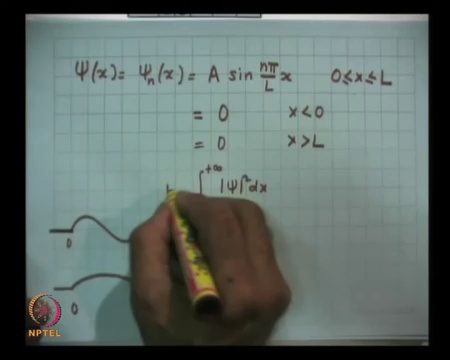 Ψ(x) = Ψn(x) = A sin nπ/L x 0≤x≤L
= 0 x<0
= 0 x>L
∫ +∞ |Ψ|² dx
0
0
NPTEL